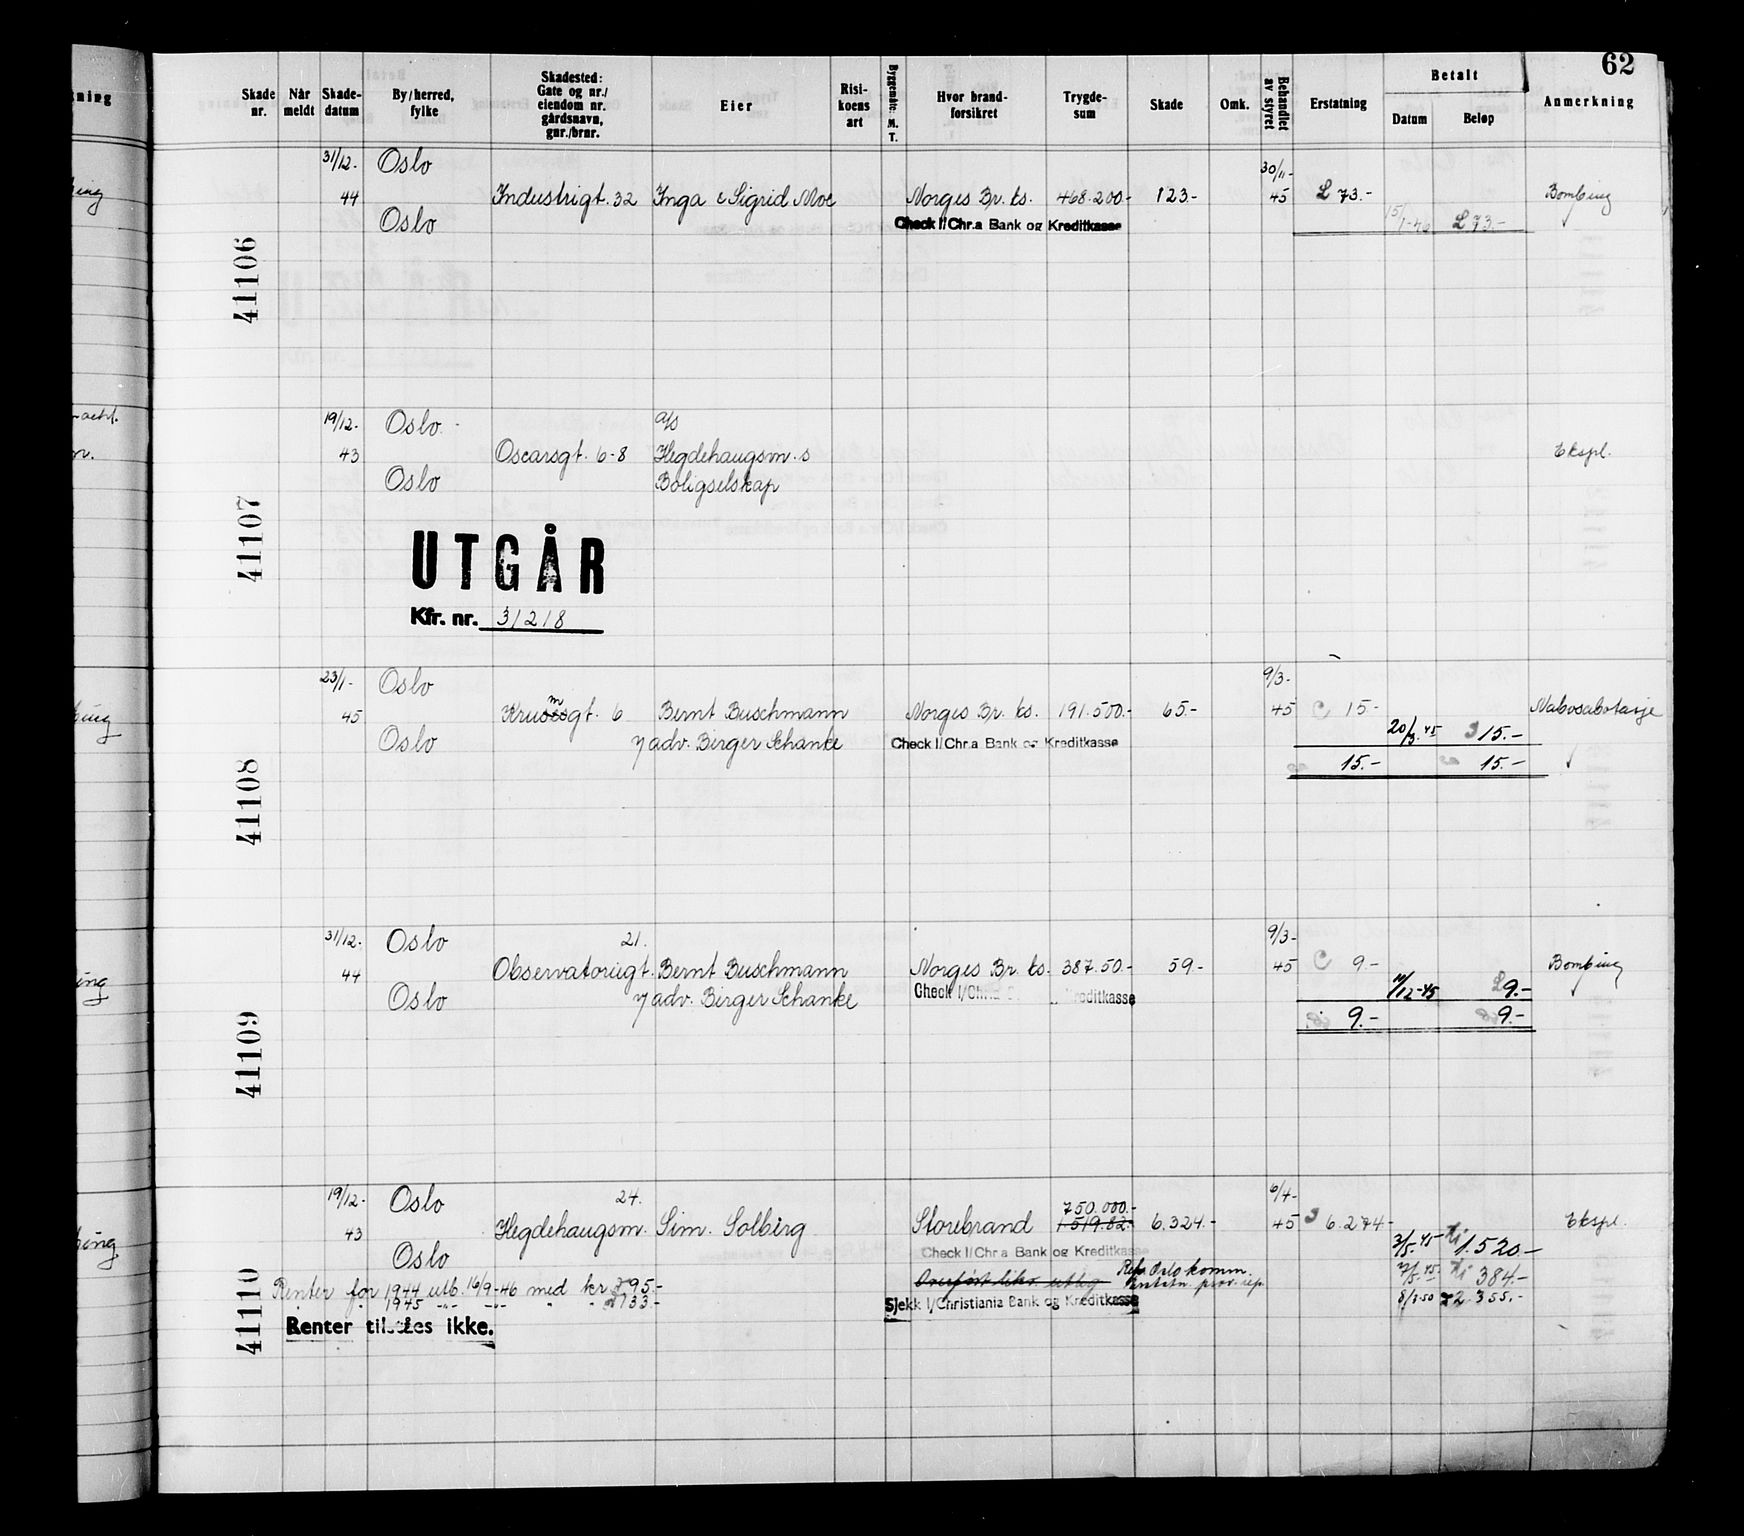 62
Skade nr. Når meldt Skade-datum By/herred, fylke Skadested: Gate og nr./ eiendom nr. gårdsnavn, gnr./brnr. Eier Risi-koens art Byggemåte: M. T. Hvor brand-forsikret Trygde-sum Skade Omk. Behandlet av styret Erstatning Betalt Datum Beløp Anmerkning
41106
31/12- Oslo 30/11-
44 Industrigt. 32 Inga & Sigrid Moe Norges Br. ks. 468.200.- 123.- 45 73.- Bombing
Oslo Check I/Chr.a Bank og Kreditkasse 15/1-46 73.-
41107
19/12- Oslo. a/s
43 Oscarsgt. 6-8 Hegdehaugsm.s Ekspl.
Oslo Boligselskap
UTGÅR
Kfr. nr. 31218
41108
23/1- Oslo 9/3-
45 gt. 6 Bernt Buschmann Norges Br. ks. 191.500.- 65.- 45 15.- Nabosabotasje
Oslo v/adv. Birger Schanke Check I/Chr.a Bank og Kreditkasse 20/3-45 15.-
15.- 15.-
41109
31/12- Oslo 21. 9/3-
44 Observatoriegt. Bernt Buschmann Norges Br. ks. 387.50.- 59.- 45 9.- Bombing
Oslo v/adv. Birger Schanke Check I/Chr.a Kreditkasse 11/12-45 9.-
9.- 9.-
41110
19/12- Oslo 24. 750.000.- 6/4-
43 Hegdehaugsm. Sim. Solberg Storebrand 1.519.82- 6.324.- 45 6.274- Ekspl.
Oslo Check I/Chr a Bank og Kreditkasse 3/5-45 1.520.-
Renter for 1944 utb. 16/9-46 med kr 295.- Oslo komm. 384.-
1945 -"- -"- " " 733.- Sjekk I/Christiania Bank og Kreditkasse 8/8-50 2.355.-
Renter tilstdes ikke.